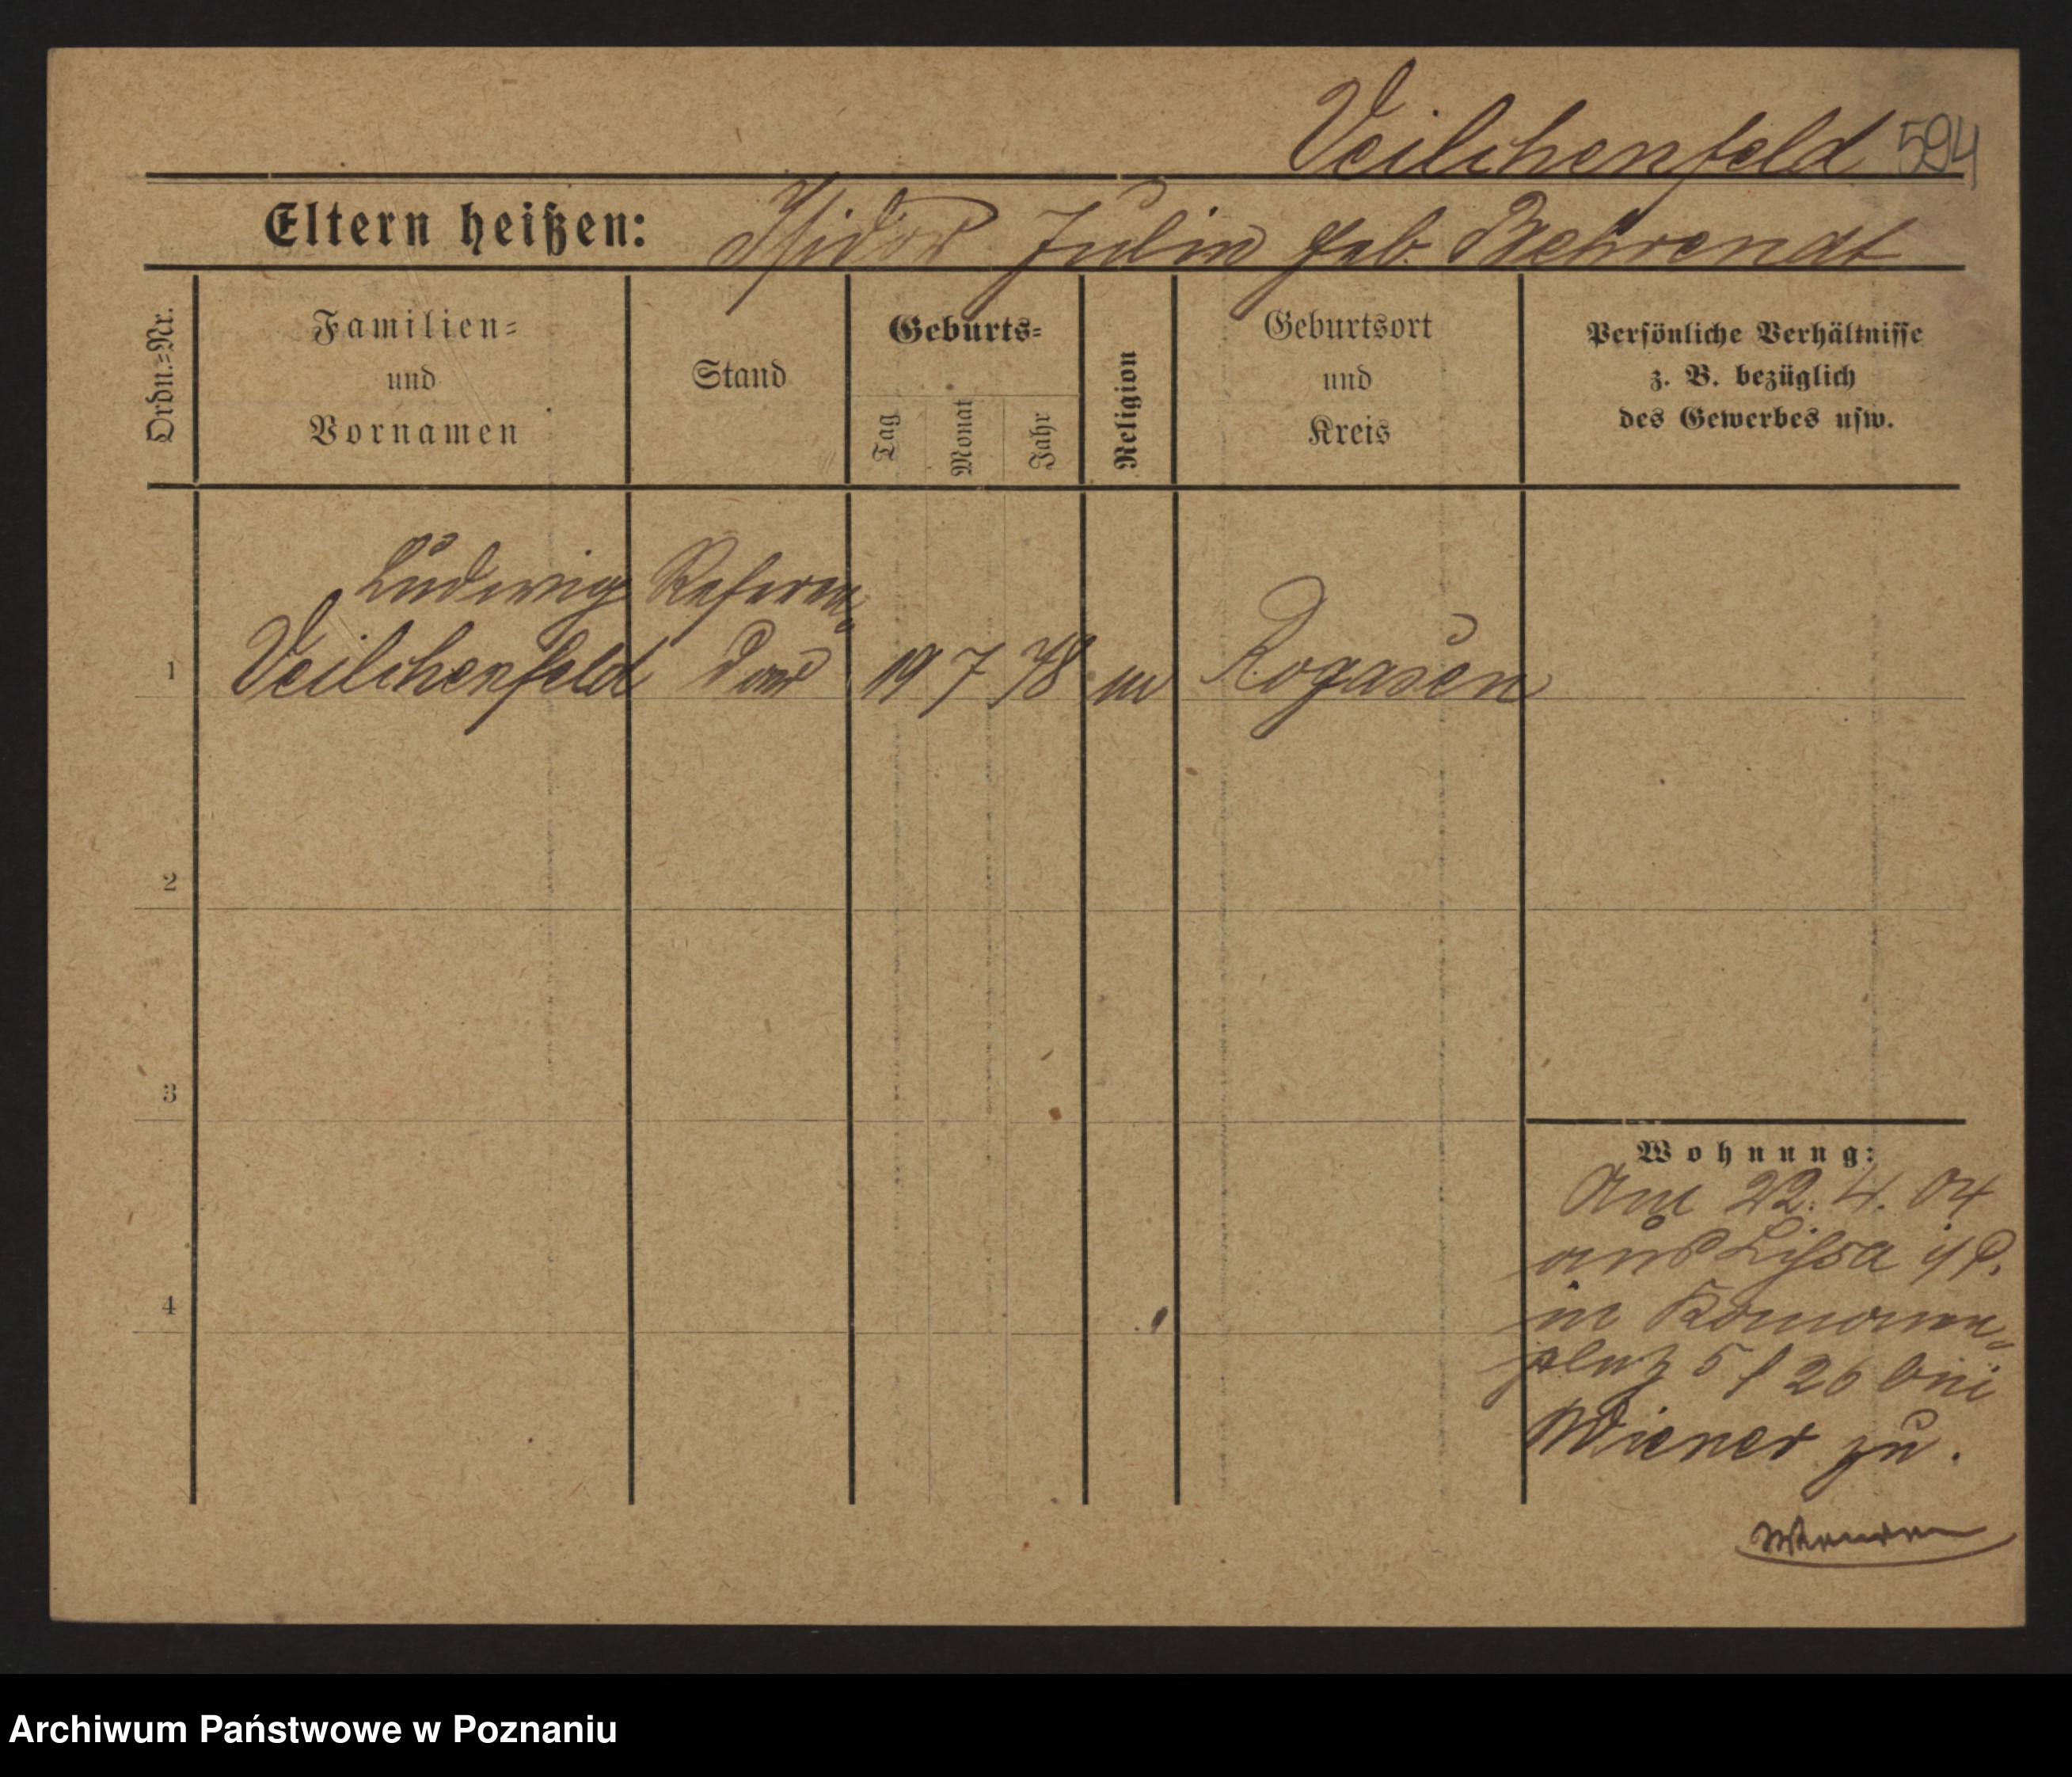 Veilchenfeld 594
Eltern heißen: Isidor Julie geb. Behrendt
Ordn.=Nr.
Familien=
und
Vornamen
Stand
Geburts=
Tag
Monat
Jahr
Religion
Geburtsort
und
Kreis
Persönliche Verhältnisse
z. B. bezüglich
des Gewerbes usw.
Ludwig Referen=
1 Veilchenfeld dar 19 7 78 m Rogasen
2
3
4
Wohnung:
Am 22. 4. 04
aus Lissa i/P.
in
platz 5 / 26 bei
Wiener zu.
Archiwum Państwowe w Poznaniu